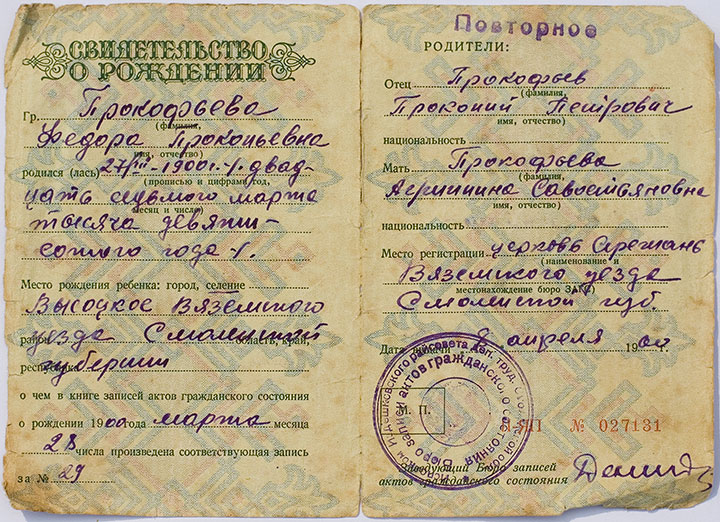 СВИДЕТЕЛЬСТВО
О РОЖДЕНИИ
Гр. Прокофьева
(фамилия,
Федора Прокопьевна
имя, отчество)
родился (лась) 27/III-1900г. двад-
(прописью и цифрами год,
цать седьмого марта
месяц и число)
тысяча девяти-
сотого года
Место рождения ребенка: город, селение
Высоцкое Вяземского
уезда Смоленской
область, край,
губернии
о чем в книге записей актов гражданского состояния
о рождении 1900 года марта месяца
28 числа произведена соответствующая запись
за № 29
Повторное
РОДИТЕЛИ:
Отец Прокофьев
(фамилия,
Прокопий Петрович
имя, отчество)
национальность
Мать Прокофьева
(фамилия,
Агриппина Савостьяновна
имя, отчество)
национальность
Место регистрации церковь
(наименование и
Вяземского уезда
местонахождение бюро ЗАГС)
Смоленской губ.
Дата выдачи 8 апреля 1900
М. П.
№ 027131
Заведующий Бюро записей
актов гражданского состояния
Бюро записи актов гражданского состояния